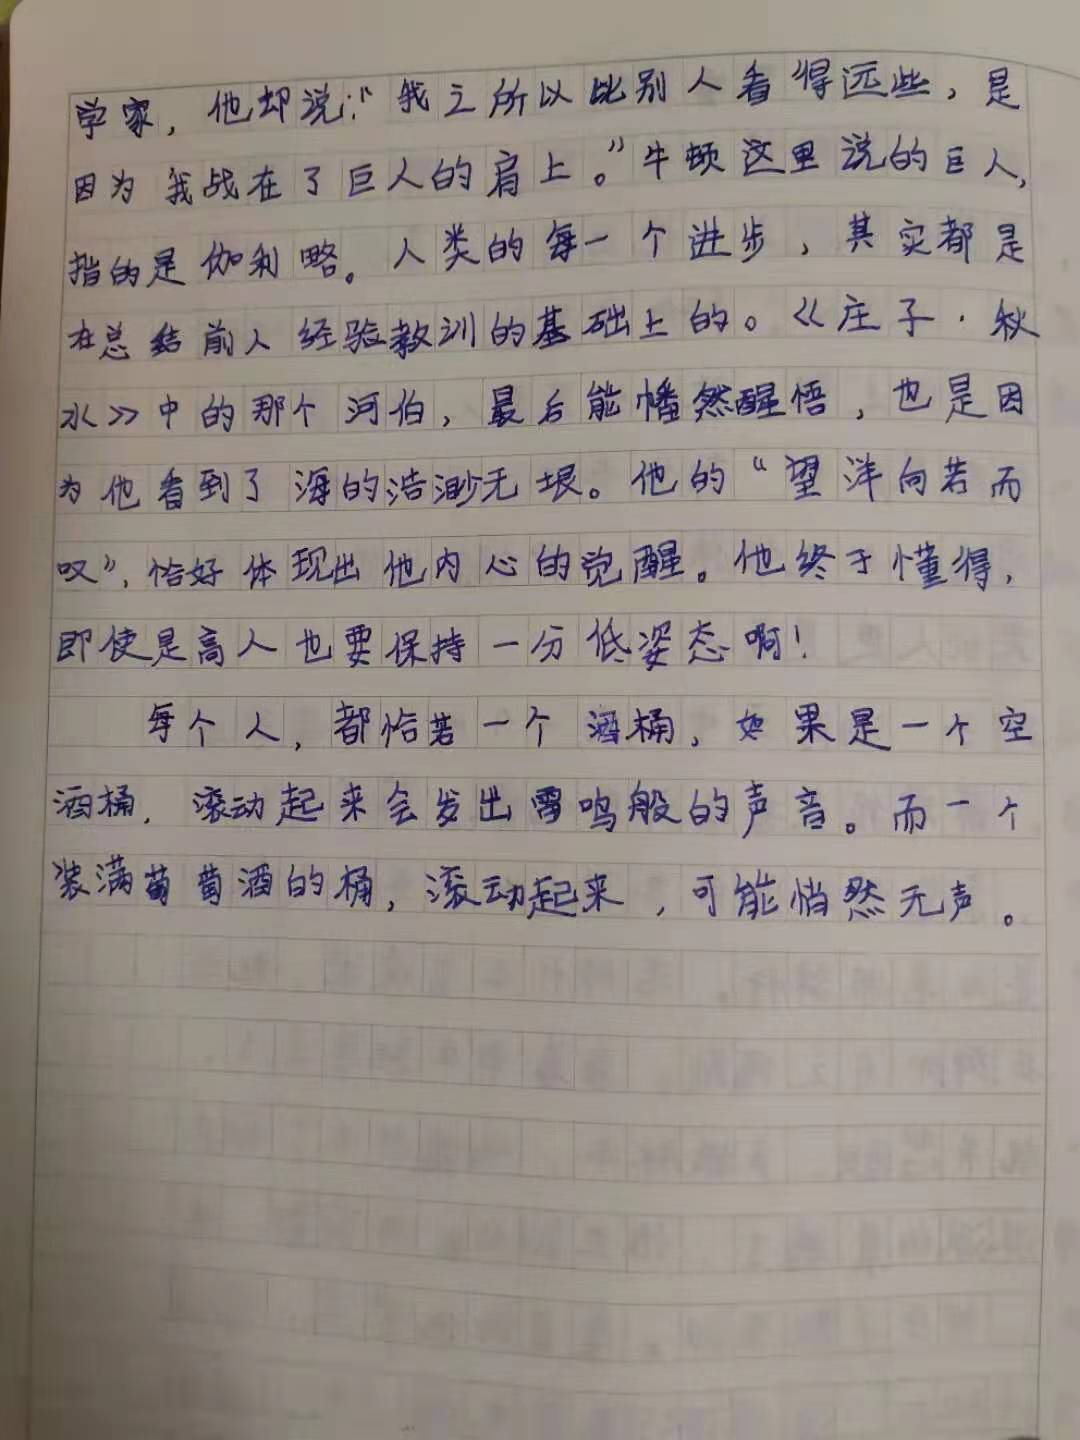 学家，他却说：“我之所以比别人看得远些，是
因为我战在了巨人的肩上。”牛顿这里说的巨人，
指的是伽利略。人类的每一个进步，其实都是
在总结前人经验教训的基础上的。《庄子·秋
水》中的那个河伯，最后能幡然醒悟，也是因
为他看到了海的浩渺无垠。他的“望洋向若而
叹”，恰好体现出他内心的觉醒。他终于懂得，
即使是高人也要保持一分低姿态啊！
每个人，都恰若一个酒桶，如果是一个空
酒桶，滚动起来会发出雷鸣般的声音。而一个
装满葡萄酒的桶，滚动起来，可能悄然无声。